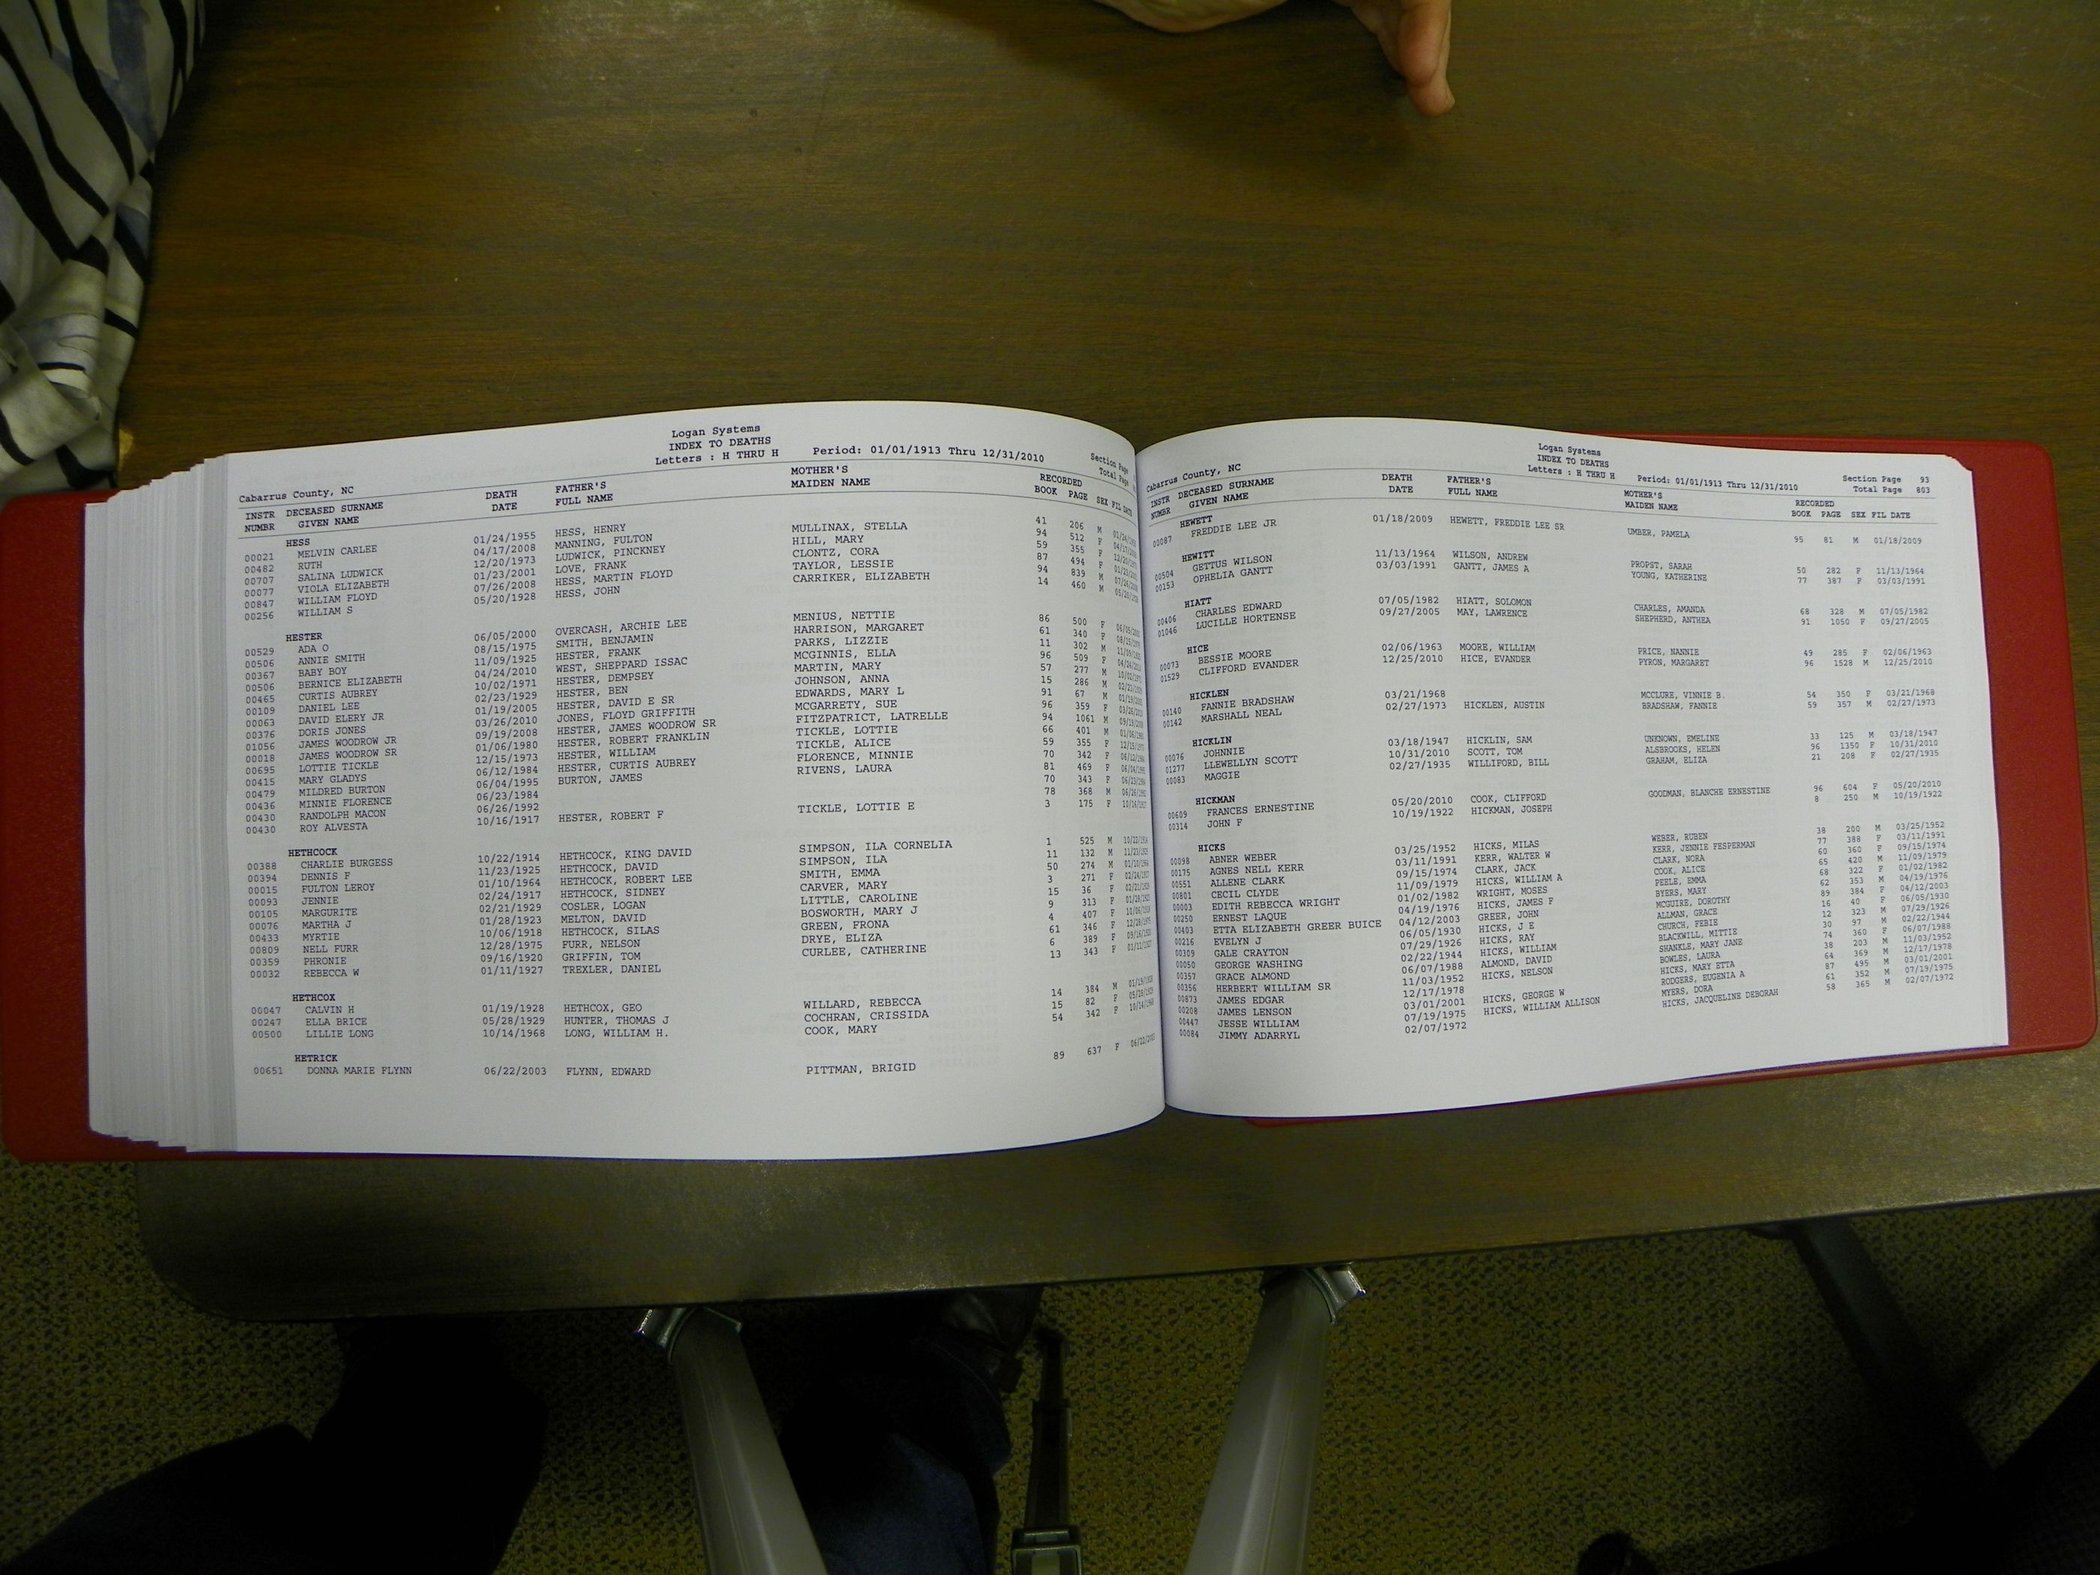 Logan Systems
INDEX TO DEATHS
Letters : H THRU H Period: 01/01/1913 Thru 12/31/2010
Cabarrus County, NC Section Page
Total Page
INSTR NUMBR DECEASED SURNAME GIVEN NAME DEATH DATE FATHER'S FULL NAME MOTHER'S MAIDEN NAME RECORDED BOOK PAGE SEX FIL DATE
HESS
00021 MELVIN CARLEE 01/24/1955 HESS, HENRY MULLINAX, STELLA 41 206 M
00482 RUTH 04/17/2008 MANNING, FULTON HILL, MARY 94 512 F
00707 SALINA LUDWICK 12/20/1973 LUDWICK, PINCKNEY CLONTZ, CORA 59 355 F
00077 VIOLA ELIZABETH 01/23/2001 LOVE, FRANK TAYLOR, LESSIE 87 494 F
00847 WILLIAM FLOYD 07/26/2008 HESS, MARTIN FLOYD CARRIKER, ELIZABETH 94 839 M
00256 WILLIAM S 05/20/1928 HESS, JOHN 14 460 M
HESTER
00529 ADA O 06/05/2000 OVERCASH, ARCHIE LEE MENIUS, NETTIE 86 500 F
00506 ANNIE SMITH 08/15/1975 SMITH, BENJAMIN HARRISON, MARGARET 61 340 F
00367 BABY BOY 11/09/1925 HESTER, FRANK PARKS, LIZZIE 11 302 M
00506 BERNICE ELIZABETH 04/24/2010 WEST, SHEPPARD ISSAC MCGINNIS, ELLA 96 509 F
00465 CURTIS AUBREY 10/02/1971 HESTER, DEMPSEY MARTIN, MARY 57 277 M
00109 DANIEL LEE 02/23/1929 HESTER, BEN JOHNSON, ANNA 15 286 M
00063 DAVID ELERY JR 01/19/2005 HESTER, DAVID E SR EDWARDS, MARY L 91 67 M
00376 DORIS JONES 03/26/2010 JONES, FLOYD GRIFFITH MCGARRETY, SUE 96 359 F
01056 JAMES WOODROW JR 09/19/2008 HESTER, JAMES WOODROW SR FITZPATRICT, LATRELLE 94 1061 M
00018 JAMES WOODROW SR 01/06/1980 HESTER, ROBERT FRANKLIN TICKLE, LOTTIE 66 401 M
00695 LOTTIE TICKLE 12/15/1973 HESTER, WILLIAM TICKLE, ALICE 59 355 F
00415 MARY GLADYS 06/12/1984 HESTER, CURTIS AUBREY FLORENCE, MINNIE 70 342 F
00479 MILDRED BURTON 06/04/1995 BURTON, JAMES RIVENS, LAURA 81 469 F
00436 MINNIE FLORENCE 06/23/1984 70 343 F
00430 RANDOLPH MACON 06/26/1992 78 368 M
00430 ROY ALVESTA 10/16/1917 HESTER, ROBERT F TICKLE, LOTTIE E 3 175 F
HETHCOCK
00388 CHARLIE BURGESS 10/22/1914 HETHCOCK, KING DAVID SIMPSON, ILA CORNELIA 1 525 M
00394 DENNIS F 11/23/1925 HETHCOCK, DAVID SIMPSON, ILA 11 132 M
00015 FULTON LEROY 01/10/1964 HETHCOCK, ROBERT LEE SMITH, EMMA 50 274 M
00093 JENNIE 02/24/1917 HETHCOCK, SIDNEY CARVER, MARY 3 271 F
00105 MARGURITE 02/21/1929 COSLER, LOGAN LITTLE, CAROLINE 15 36 F
00076 MARTHA J 01/28/1923 MELTON, DAVID BOSWORTH, MARY J 9 313 F
00433 MYRTIE 10/06/1918 HETHCOCK, SILAS GREEN, FRONA 4 407 F
00809 NELL FURR 12/28/1975 FURR, NELSON DRYE, ELIZA 61 346 F
00359 PHRONIE 09/16/1920 GRIFFIN, TOM CURLEE, CATHERINE 6 389 F
00032 REBECCA W 01/11/1927 TREXLER, DANIEL 13 343 F
HETHCOX
00047 CALVIN H 01/19/1928 HETHCOX, GEO WILLARD, REBECCA 14 384 M
00247 ELLA BRICE 05/28/1929 HUNTER, THOMAS J COCHRAN, CRISSIDA 15 82 F
00500 LILLIE LONG 10/14/1968 LONG, WILLIAM H. COOK, MARY 54 342 F
HETRICK
00651 DONNA MARIE FLYNN 06/22/2003 FLYNN, EDWARD PITTMAN, BRIGID 89 637 F
Logan Systems
INDEX TO DEATHS
Letters : H THRU H Period: 01/01/1913 Thru 12/31/2010
Cabarrus County, NC Section Page 93
Total Page 803
INSTR NUMBR DECEASED SURNAME GIVEN NAME DEATH DATE FATHER'S FULL NAME MOTHER'S MAIDEN NAME RECORDED BOOK PAGE SEX FIL DATE
HEWETT
00087 FREDDIE LEE JR 01/18/2009 HEWETT, FREDDIE LEE SR UMBER, PAMELA 95 81 M 01/18/2009
HEWITT
00504 GETTUS WILSON 11/13/1964 WILSON, ANDREW PROPST, SARAH 50 282 F 11/13/1964
00153 OPHELIA GANTT 03/03/1991 GANTT, JAMES A YOUNG, KATHERINE 77 387 F 03/03/1991
HIATT
00406 CHARLES EDWARD 07/05/1982 HIATT, SOLOMON CHARLES, AMANDA 68 328 M 07/05/1982
01046 LUCILLE HORTENSE 09/27/2005 MAY, LAWRENCE SHEPHERD, ANTHEA 91 1050 F 09/27/2005
HICE
00073 BESSIE MOORE 02/06/1963 MOORE, WILLIAM PRICE, NANNIE 49 285 F 02/06/1963
01529 CLIFFORD EVANDER 12/25/2010 HICE, EVANDER PYRON, MARGARET 96 1528 M 12/25/2010
HICKLEN
00140 FANNIE BRADSHAW 03/21/1968 MCCLURE, VINNIE B. 54 350 F 03/21/1968
00142 MARSHALL NEAL 02/27/1973 HICKLEN, AUSTIN BRADSHAW, FANNIE 59 357 M 02/27/1973
HICKLIN
00076 JOHNNIE 03/18/1947 HICKLIN, SAM UNKNOWN, EMELINE 33 125 M 03/18/1947
01277 LLEWELLYN SCOTT 10/31/2010 SCOTT, TOM ALSBROOKS, HELEN 96 1350 F 10/31/2010
00083 MAGGIE 02/27/1935 WILLIFORD, BILL GRAHAM, ELIZA 21 208 F 02/27/1935
HICKMAN
00609 FRANCES ERNESTINE 05/20/2010 COOK, CLIFFORD GOODMAN, BLANCHE ERNESTINE 96 604 F 05/20/2010
00314 JOHN F 10/19/1922 HICKMAN, JOSEPH 8 250 M 10/19/1922
HICKS
00098 ABNER WEBER 03/25/1952 HICKS, MILAS WEBER, RUBEN 38 200 M 03/25/1952
00175 AGNES NELL KERR 03/11/1991 KERR, WALTER W KERR, JENNIE FESPERMAN 77 388 F 03/11/1991
00551 ALLENE CLARK 09/15/1974 CLARK, JACK CLARK, NORA 60 360 F 09/15/1974
00801 CECIL CLYDE 11/09/1979 HICKS, WILLIAM A COOK, ALICE 65 420 M 11/09/1979
00003 EDITH REBECCA WRIGHT 01/02/1982 WRIGHT, MOSES PEELE, EMMA 68 322 F 01/02/1982
00250 ERNEST LAQUE 04/19/1976 HICKS, JAMES F BYERS, MARY 62 353 M 04/19/1976
00403 ETTA ELIZABETH GREER BUICE 04/12/2003 GREER, JOHN MCGUIRE, DOROTHY 89 384 F 04/12/2003
00216 EVELYN J 06/05/1930 HICKS, J E ALLMAN, GRACE 16 40 F 06/05/1930
00309 GALE CRAYTON 07/29/1926 HICKS, RAY CHURCH, FEBIE 12 323 M 07/29/1926
00050 GEORGE WASHING 02/22/1944 HICKS, WILLIAM BLACKWILL, MITTIE 30 97 M 02/22/1944
00357 GRACE ALMOND 06/07/1988 ALMOND, DAVID SHANKLE, MARY JANE 74 360 F 06/07/1988
00356 HERBERT WILLIAM SR 11/03/1952 HICKS, NELSON BOWLES, LAURA 38 203 M 11/03/1952
00873 JAMES EDGAR 12/17/1978 HICKS, MARY ETTA 64 369 M 12/17/1978
00208 JAMES LENSON 03/01/2001 HICKS, GEORGE W RODGERS, EUGENIA A 87 495 M 03/01/2001
00447 JESSE WILLIAM 07/19/1975 HICKS, WILLIAM ALLISON MYERS, DORA 61 352 M 07/19/1975
00084 JIMMY ADARRYL 02/07/1972 HICKS, JACQUELINE DEBORAH 58 365 M 02/07/1972